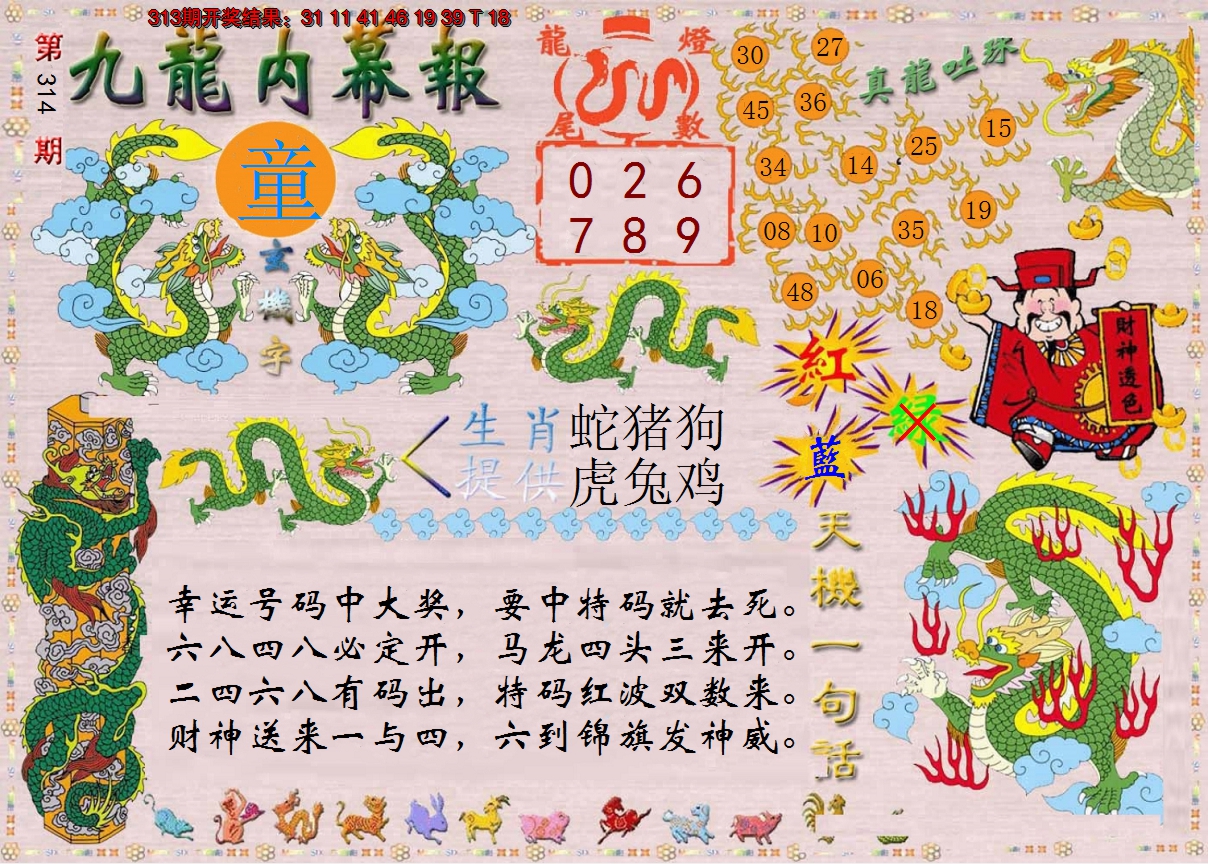 313期开奖结果：31 11 41 46 19 39 T 18
第
314
期
九龍内幕報
童
玄
機
字
龍 燈
尾 數
0 2 6
7 8 9
真龍吐珠
30
27
45
36
34
14
25
15
08
10
35
19
48
06
18
紅
绿
藍
財神透色
生肖
提供
蛇猪狗
虎兔鸡
天機一句話
幸运号码中大奖，要中特码就去死。
六八四八必定开，马龙四头三来开。
二四六八有码出，特码红波双数来。
财神送来一与四，六到锦旗发神威。